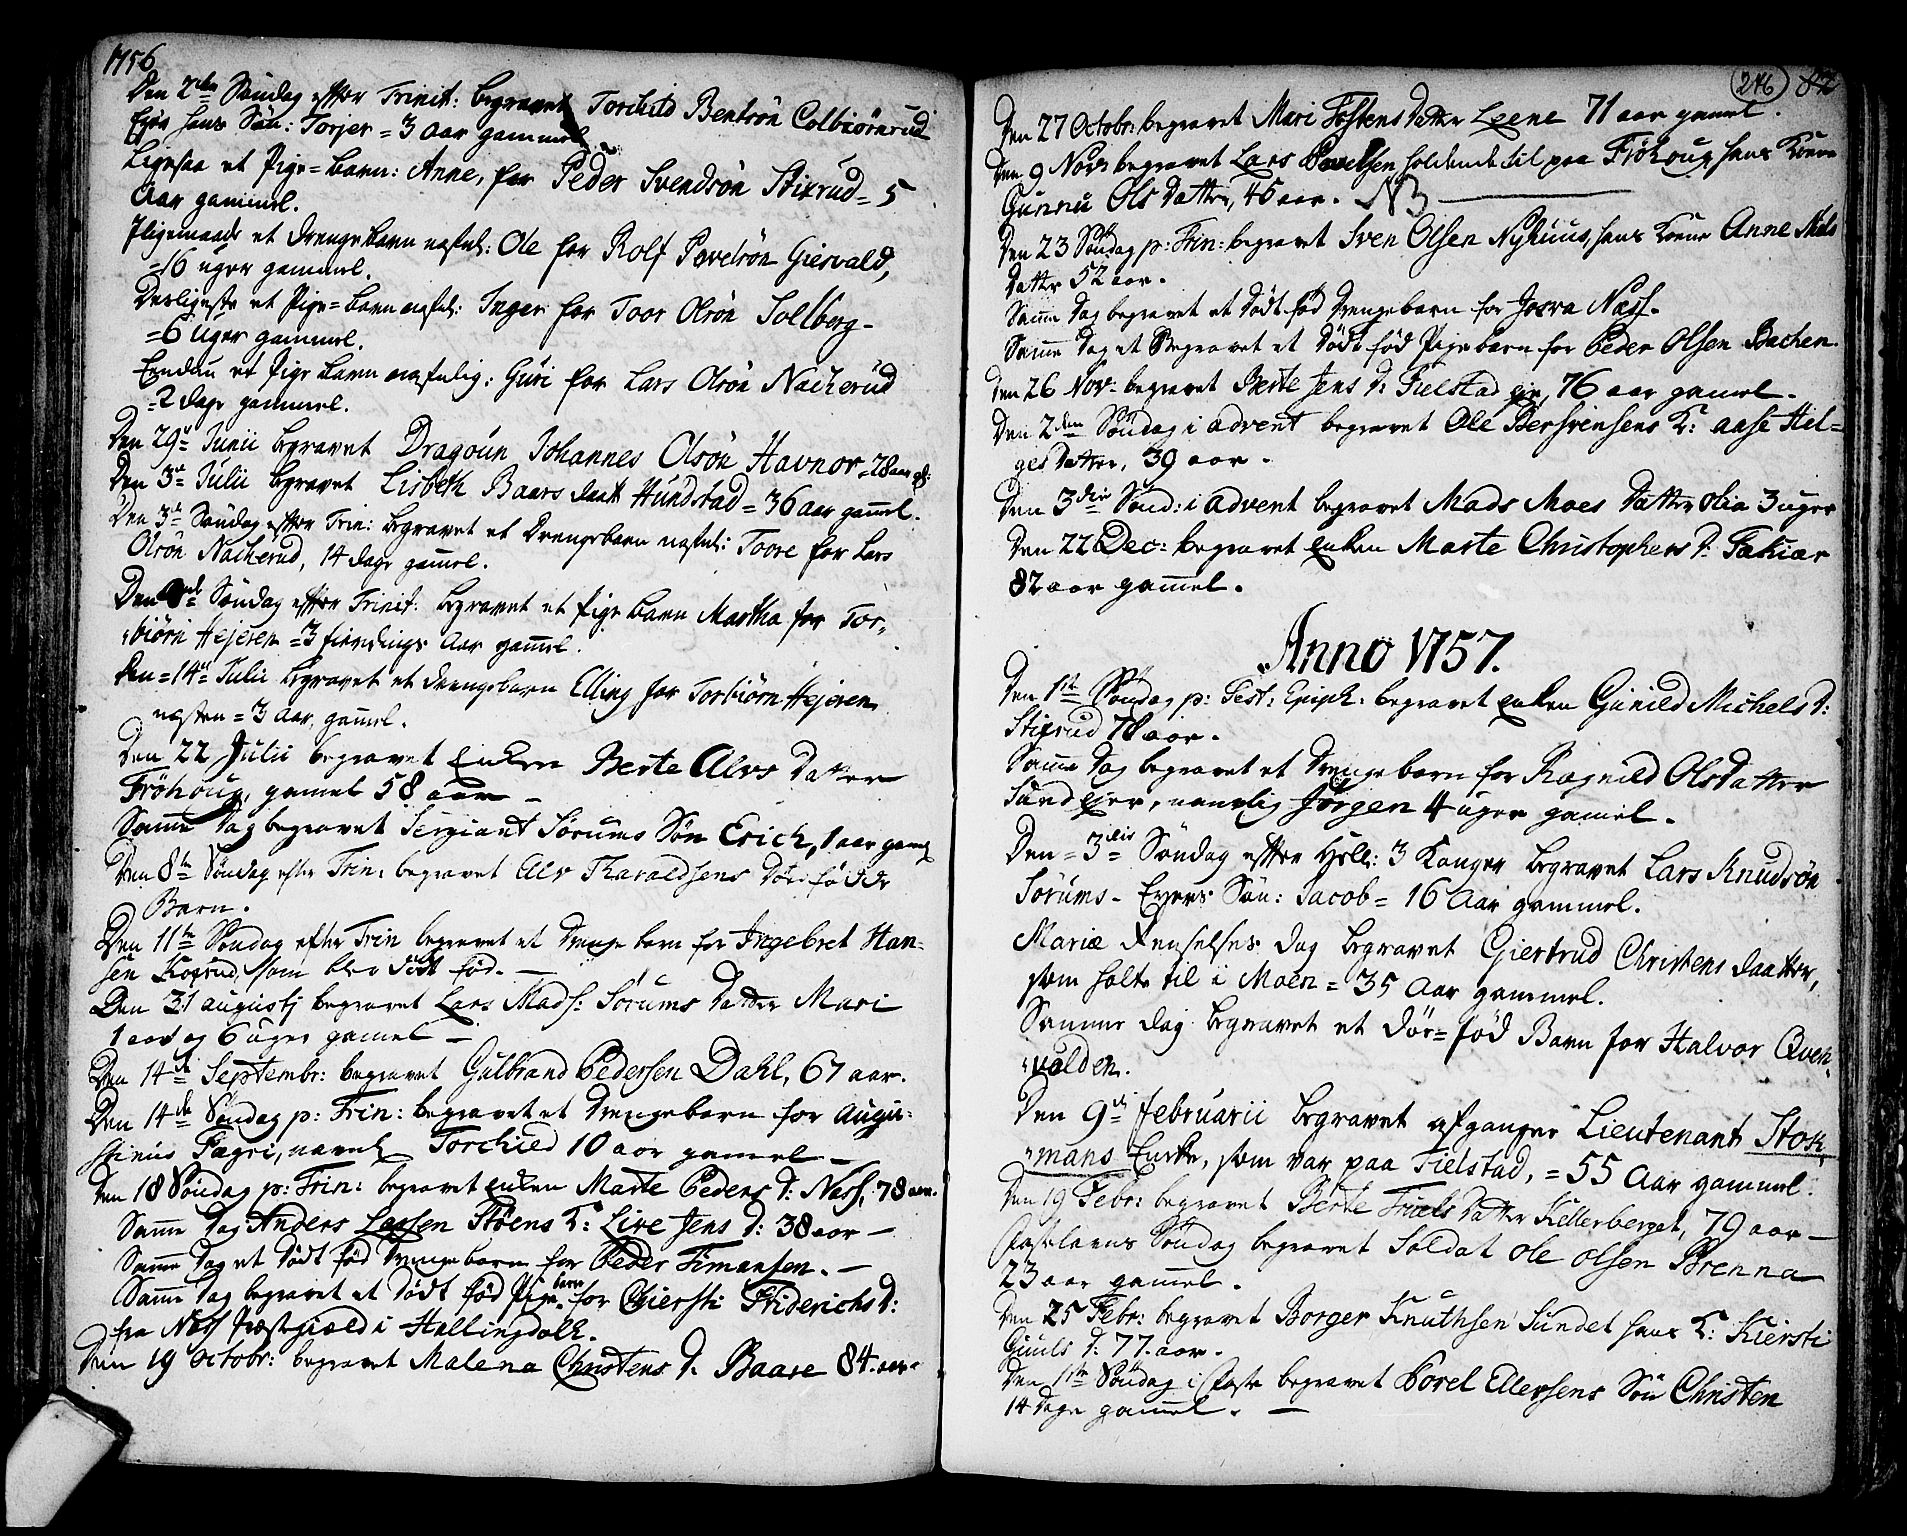 1756
Den 2den Søndag effter Trinit: begravet Torchild Bentsön Colbiörnrud
Ejer hans Søn: Torjer = 3 Aar gammel.
Ligesaa et Pige=Barn: Anne, for Peder Svendsön Stixrud = 5
Aar gammel.
Iligemaade et Drengebarn nafnl: Ole for Rolf Povelsön Giesvald,
=16 uger gammel.
Desligeste et Pige=Barn nafnl: Inger for Toor Olsön Sollberg -
=6 Uger gammel.
Endnu et Pige Barn nafnlig: Guri for Lars Olsön Nackerud
=2 dage gammel.
Den 29de Junii begravet Dragoun Johannes Olsön Havnor = 28 aar gl:
Den 3de Julii begravet Lisbeth Baars daatt Hundstad = 36 Aar gamel.
Den 3de Søndag effter Trin: begravet et Drengebarn nafnl: Toore for Lars
Olsön Nackerud, 14 dage gamel.
Den Søndag effter Trinit: begravet et Pige Barn Martha for Tor-
biörn Hejeren = 3 fierdings Aar gamel.
Den = 14de Julii begravet et Drengebarn Elling for Torbiörn Hejeren
næsten = 3 Aar gamel.
Den 22 Julii begravet Enken Berte Alvs Datter
Fröhoug, gamel 58 aar -
Samme Dag begravet Sergiant Sörums Sön Erich, 1 aar gaml
Den 8de Søndag efter Trin: begravet Alv Tharaldsens Död fødde
Barn.
Den 11te Søndag efter Trin begravet et Drenge barn for Ingebret Han-
sen Koxrud, som blev död fød. -
Den 31 augustj begravet Lars Mads: Sörums Datter Mari
1 aar og 6 uger gamel -
Den 14de Septembr: begravet Gulbrand Pedersen Dahl, 67 aar.
Den 14de Søndag p: Trin: begravet et Drengebarn for Augu-
stinus Fægri, navnl Torchild 10 aar gamel -
Den 18 Søndag p: Trin: begravet enken Marte Peders D: Næss, 78 aar.
Samme Dag Anders Larsen Stöens K: Live Jens D: 38 aar -
Samme Dag et Dödt föd Drengebarn for Peder Timansen. -
Samme Dag begravet et dödt föd Pige barn for Chiersti Friderichs D:
fra Næss Præstegield i Hallingdalen.
Den 19 Octobr: begravet Malena Christens D: Baare 84. aar.
246 82
Den 27 Octobr: begravet Mari Tostens Datter Leene 71 aar gamel.
Den 9 Nov: begravet Lars Povelsen holdende til paa Fröhoug hans Kone
Gunnu Ols Datter, 45 aar. NB
Den 23 Søndag p: Trin: begravet Sven Olsen Nyhuus, hans Kone Anne Niels
Datter 52 aar.
Samme Dag begravet et dödt föd Drengebarn for Josva Næss.
Samme Dag et Begravet et dödt föd Pige barn for Peder Olsen Bachen.
Den 26 Nov: begravet Berte Jens D: Fielstad eje, 76 aar gamel.
Den 2den Søndag i advent begravet Ole Bersvensens K: Aase Hel=
ges Datter, 39 aar.
Den 3die Sönd: i advent begravet Mads Moes Datter Olia 3 uger
Den 22 Dec: begravet enken Marte Christophers D: Fakiær
82 aar gamel.
Anno 1757.
Den 1ste Søndag p: Fest: Epiph: begravet enken Gunild Michels D:
Stixrud 78 aar.
Samme Dag begravet et Drenge barn for Ragnild Olsdatter
Sundejer, navnlig Jörgen 4 uger gamel.
Den = 3die Søndag effter Hell: 3 Konger begravet Lars Knudsön
Sörums - Ejers Sön: Jacob = 16 Aar gammel.
Mariæ Renselses Dag begravet Giertrud Christens daatter,
som holte til i Moen = 35 Aar gammel.
Samme dag begravet et död=föd Barn for Halvor Qven-
valden.
Den 9de februarii begravet afgangne Lieutenant Stok-
mans Enke, som var paa Fielstad, = 55 Aar gammel.
Den 19 Febr: begravet Berte Truels Datter Kellerberget, 79 aar -
Fastelavns Søndag begravet Soldat Ole Olsen Brenna
23 aar gamel.
Den 25 Febr: begravet Borger Knuthsen Sundet hans K: Kiersti
Guuls D: 77. aar.
Den 1ste Søndag i Faste begravet Porel Ellevsens Sön Christen
14 Dage gamel. -